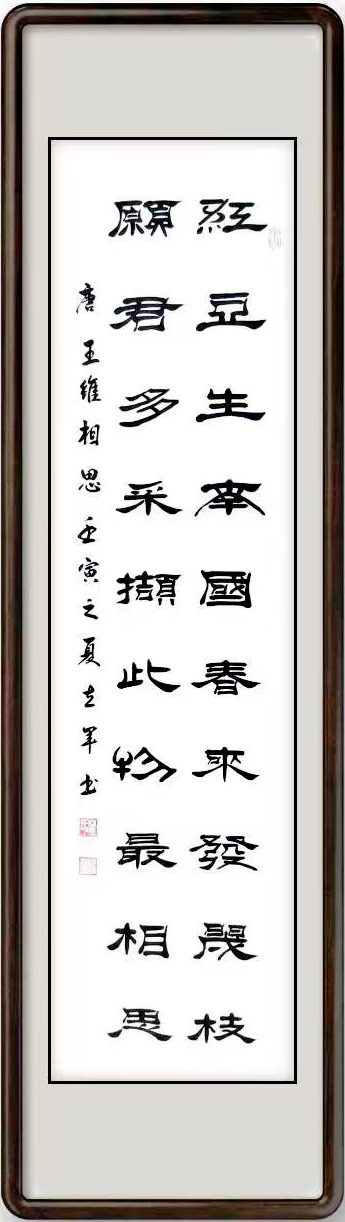 紅豆生南國春來發幾枝
願君多采擷此物最相思
唐王維相思壬寅之夏立軍书